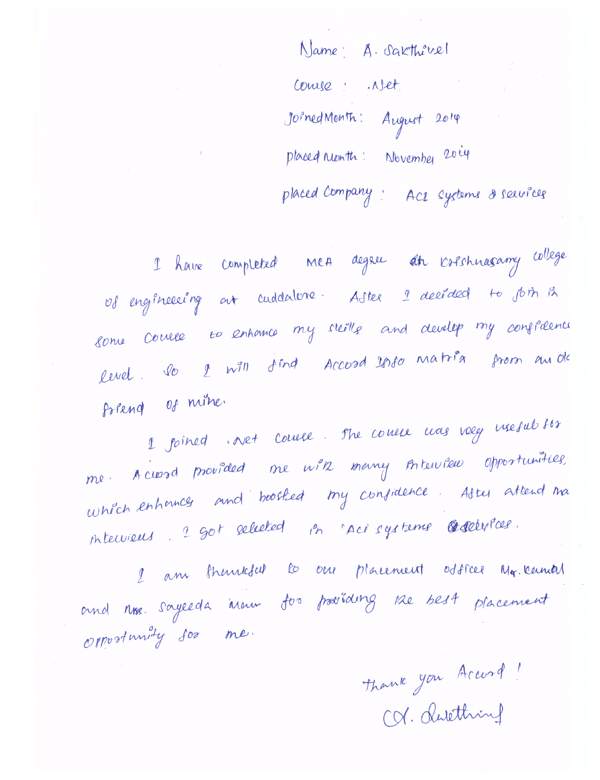 Name: A. Sakthivel
Course : .Net
Joined Month: August 2014
Placed Month: November 2014
Placed Company: ACI Systems & Services
I have completed MCA degree in Krishnasamy college
of engineering at cuddalore. After I decided to join in
some course to enhance my skills and develop my confidence
level. So I will find Accord Info Matrix from an old
friend of mine.
I joined .Net course. The course was very useful for
me. Accord provided me with many interview opportunities,
which enhances and boosted my confidence. After attend ma
interviews. I got selected in Aci systems & services.
I am thankful to our placement officer Mr. Kamal
and Mrs. Sayeeda for providing the best placement
opportunity for me.
Thank you Accord!